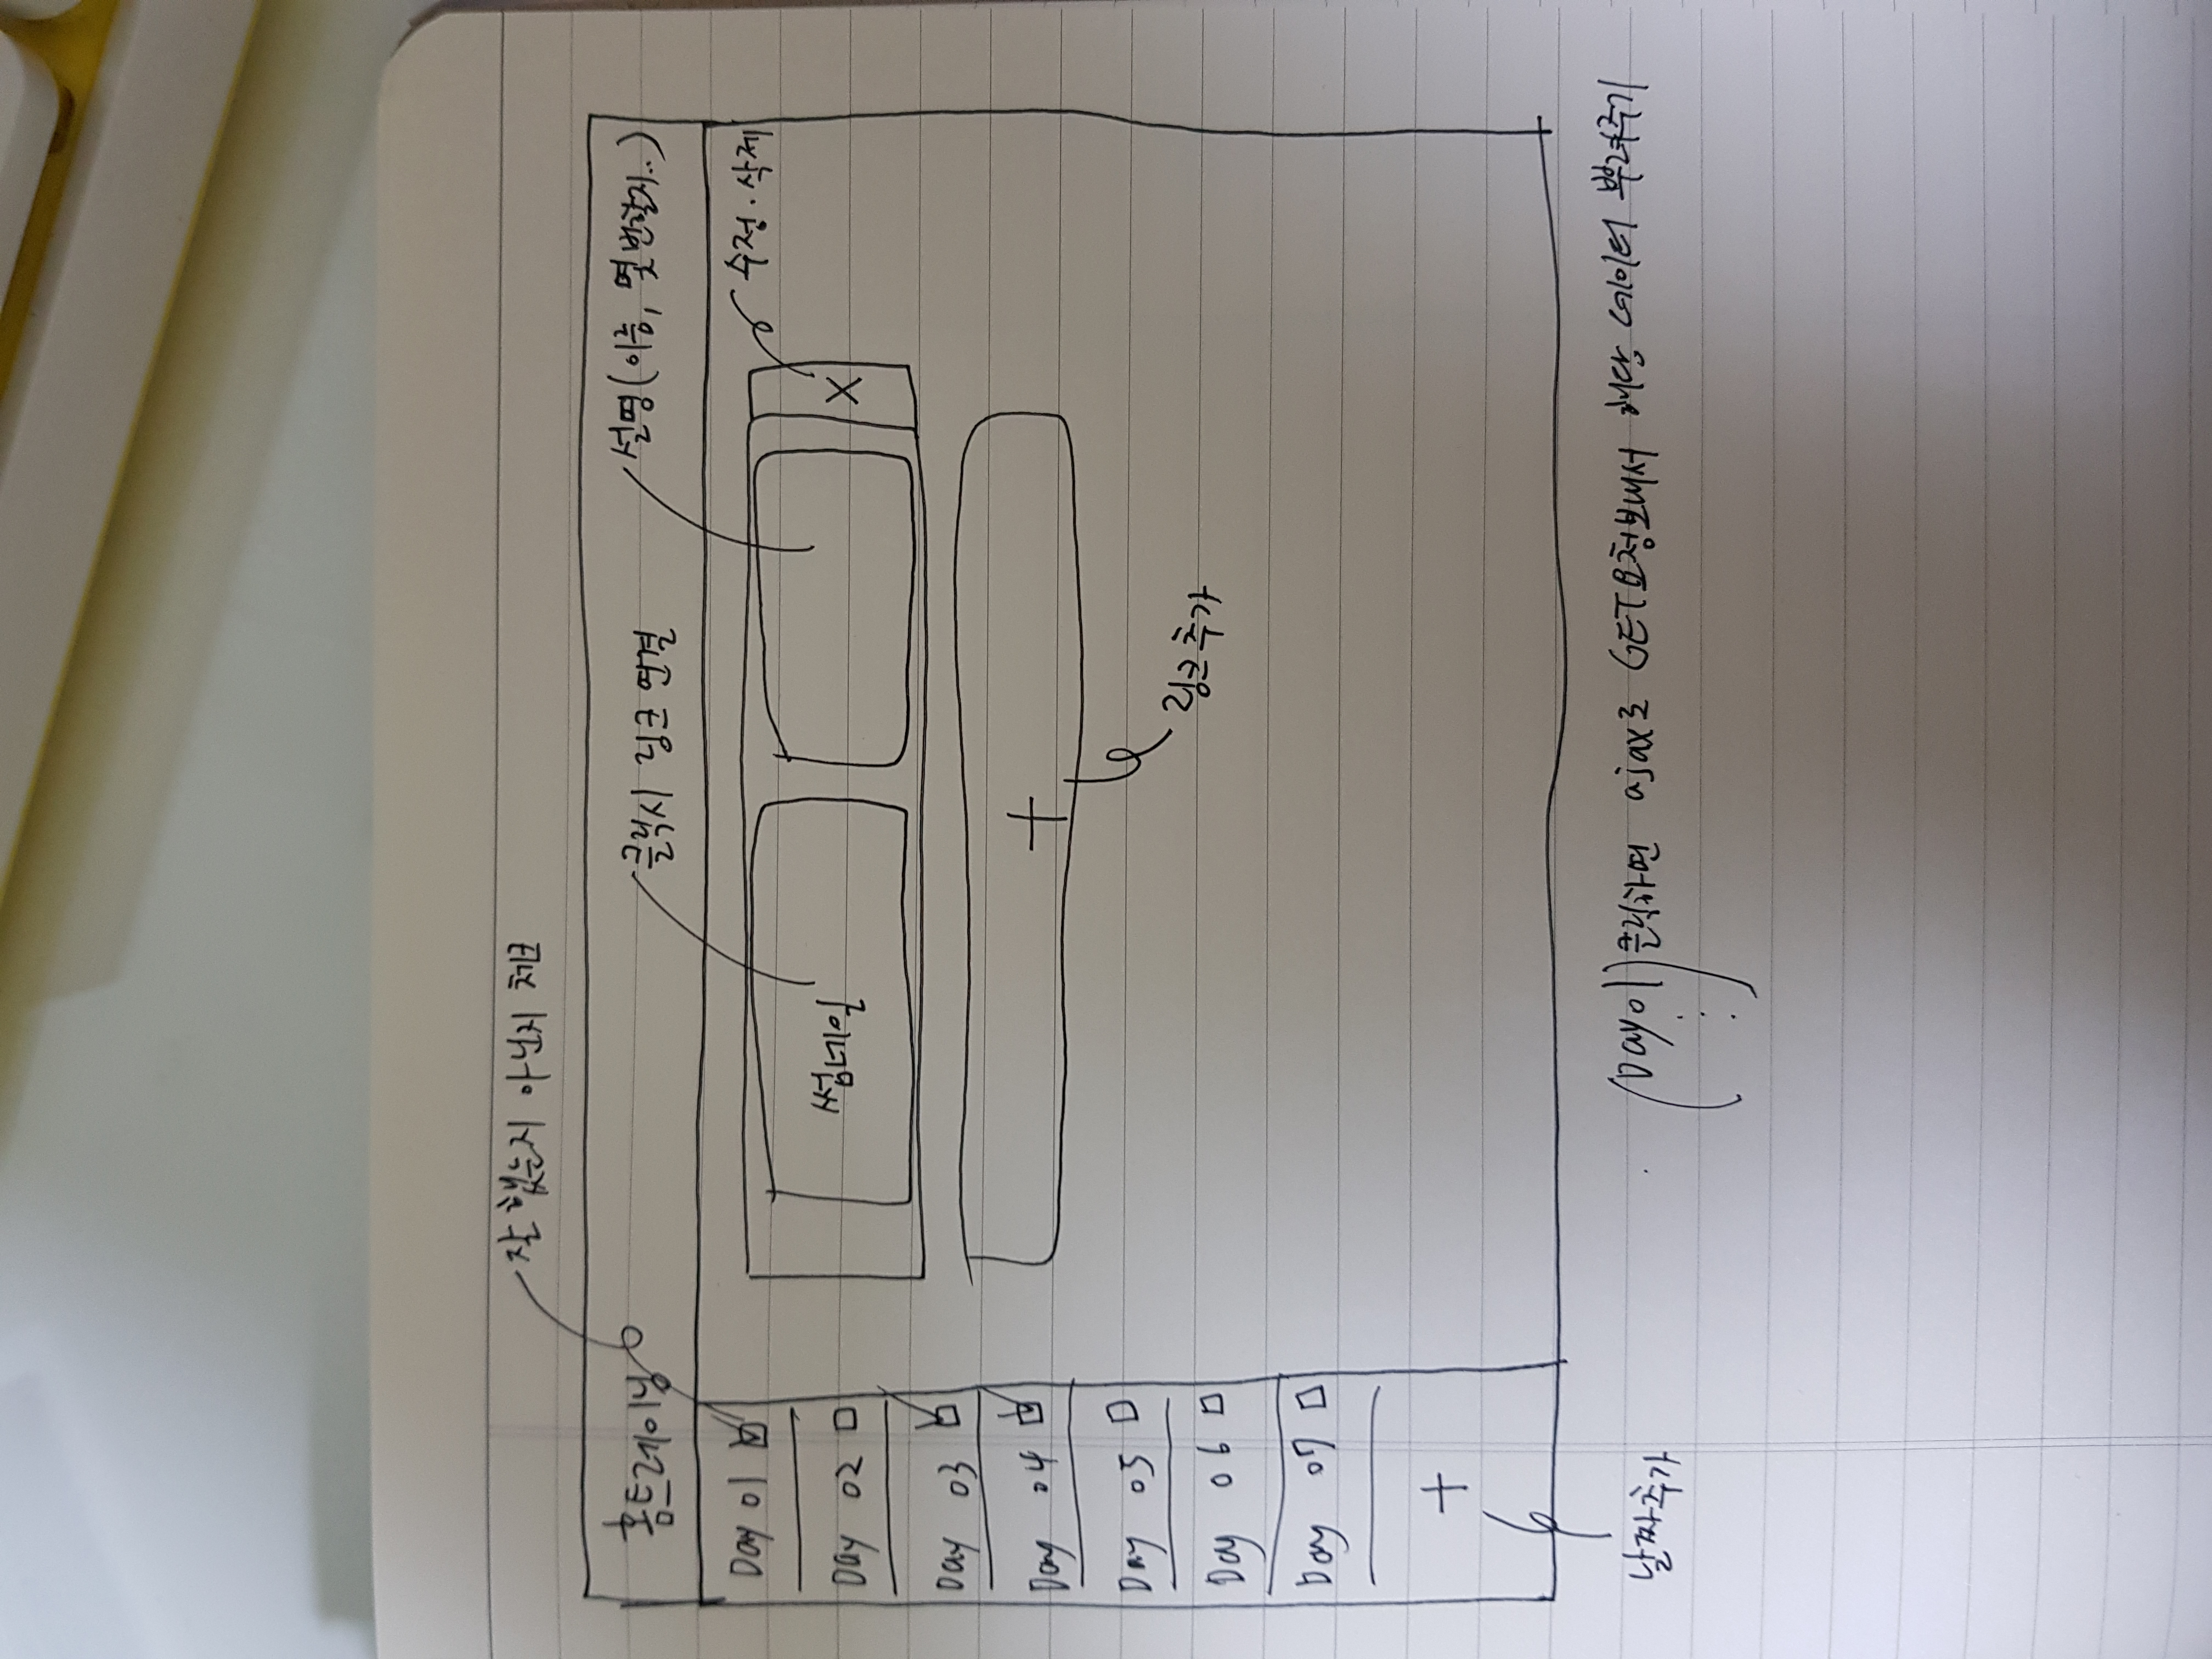 잘 했는지 아닌지 체크
홈트레이닝
클릭시 링크 연결
설명(이름, 몇번할지..)
수정·삭제
Day 01
썸네일
X
Day 02
Day 03
Day 04
+
Day 05
링크추가
Day 06
Day 07
+
날짜추가
(Day01) 클릭하면 ajax로 GET요청보내서 해당 데이터 뿌려주기